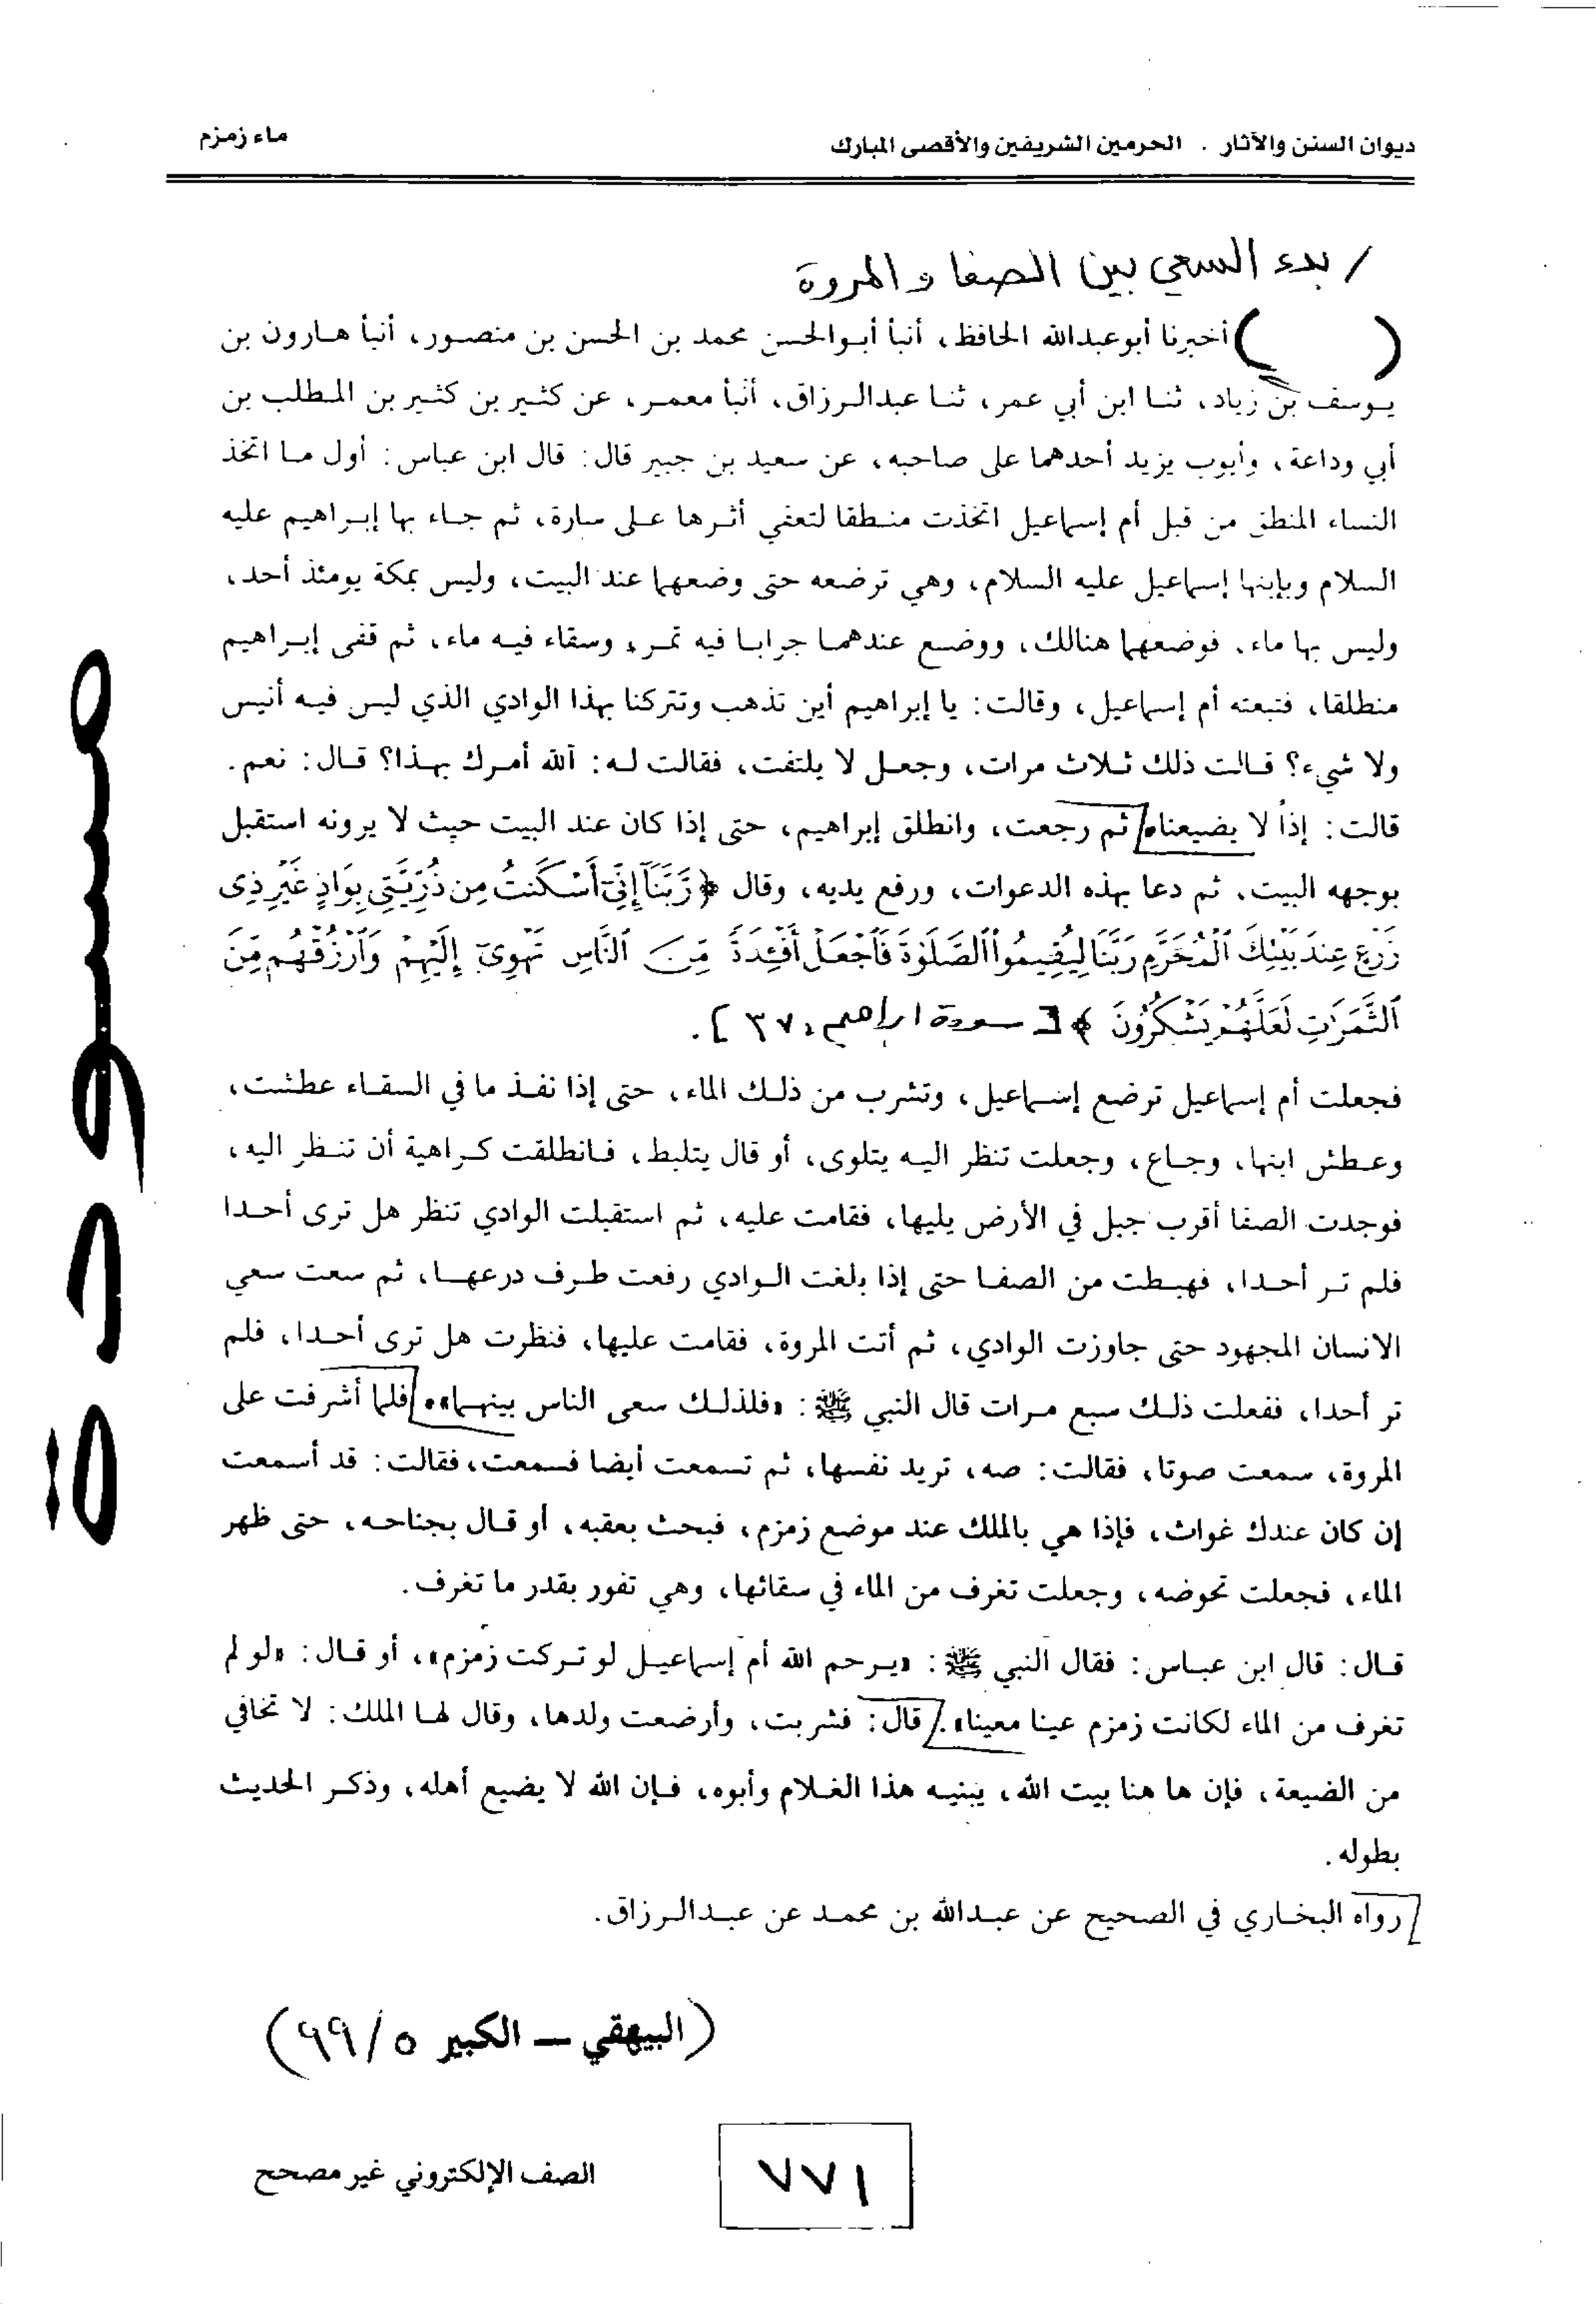 ديوان السنن والآثار . الحرمين الشريفين والأقصى المبارك
ماء زمزم
/ بدء السعي بين الصفا والمروة
( ) أخبرنا أبوعبدالله الحافظ، أنبأ أبوالحسن محمد بن الحسن بن منصور، أنبأ هارون بن
يوسف بن زياد، ثنا ابن أبي عمر، ثنا عبدالرزاق، أنبأ معمر، عن كثير بن كثير بن المطلب بن
أبي وداعة، وأيوب يزيد أحدهما على صاحبه، عن سعيد بن جبير قال: قال ابن عباس: أول ما اتخذ
النساء المنطق من قبل أم إسماعيل اتخذت منطقا لتعفي أثرها على سارة، ثم جاء بها إبراهيم عليه
السلام وبإبنها إسماعيل عليه السلام، وهي ترضعه حتى وضعهما عند البيت، وليس بمكة يومئذ أحد،
وليس بها ماء. فوضعهما هنالك، ووضع عندهما جرابا فيه تمر، وسقاء فيه ماء، ثم قفى إبراهيم
منطلقا، فتبعته أم إسماعيل، وقالت: يا إبراهيم أين تذهب وتتركنا بهذا الوادي الذي ليس فيه أنيس
ولا شيء؟ قالت ذلك ثلاث مرات، وجعل لا يلتفت، فقالت له: آلله أمرك بهذا؟ قال: نعم.
قالت: إذاً لا يضيعنا، ثم رجعت، وانطلق إبراهيم، حتى إذا كان عند البيت حيث لا يرونه استقبل
بوجهه البيت. ثم دعا بهذه الدعوات، ورفع يديه، وقال ﴿رَّبَّنَآ إِنِّىٓ أَسْكَنتُ مِن ذُرِّيَّتِى بِوَادٍ غَيْرِ ذِى
زَرْعٍ عِندَ بَيْتِكَ ٱلْمُحَرَّمِ رَبَّنَا لِيُقِيمُوا۟ ٱلصَّلَوٰةَ فَٱجْعَلْ أَفْـِٔدَةً مِّنَ ٱلنَّاسِ تَهْوِىٓ إِلَيْهِمْ وَٱرْزُقْهُم مِّنَ
ٱلثَّمَرَٰتِ لَعَلَّهُمْ يَشْكُرُونَ﴾ [سورة ابراهيم، ٣٧].
فجعلت أم إسماعيل ترضع إسماعيل، وتشرب من ذلك الماء، حتى إذا نفذ ما في السقاء عطشت،
وعطش ابنها، وجاع، وجعلت تنظر اليه يتلوى، أو قال يتلبط، فانطلقت كراهية أن تنظر اليه،
فوجدت الصفا أقرب جبل في الأرض يليها، فقامت عليه، ثم استقبلت الوادي تنظر هل ترى أحدا
فلم تر أحدا، فهبطت من الصفا حتى إذا بلغت الوادي رفعت طرف درعها، ثم سعت سعي
الانسان المجهود حتى جاوزت الوادي، ثم أتت المروة، فقامت عليها، فنظرت هل ترى أحدا، فلم
تر أحدا، ففعلت ذلك سبع مرات قال النبي ﷺ: «فلذلك سعى الناس بينهما». فلما أشرفت على
المروة، سمعت صوتا، فقالت: صه، تريد نفسها، ثم تسمعت أيضا فسمعت، فقالت: قد أسمعت
إن كان عندك غواث، فإذا هي بالملك عند موضع زمزم، فبحث بعقبه، أو قال بجناحه، حتى ظهر
الماء، فجعلت تحوضه، وجعلت تغرف من الماء في سقائها، وهي تفور بقدر ما تغرف.
قال: قال ابن عباس: فقال النبي ﷺ: «يرحم الله أم إسماعيل لو تركت زمزم»، أو قال: «لو لم
تغرف من الماء لكانت زمزم عينا معينا». قال: فشربت، وأرضعت ولدها، وقال لها الملك: لا تخافي
من الضيعة، فإن ها هنا بيت الله، يبنيه هذا الغلام وأبوه، فإن الله لا يضيع أهله، وذكر الحديث
بطوله.
رواه البخاري في الصحيح عن عبدالله بن محمد عن عبدالرزاق.
(البيهقي – الكبير ٥/ ٩٩)
٧٧١
الصف الإلكتروني غير مصحح
مسودة